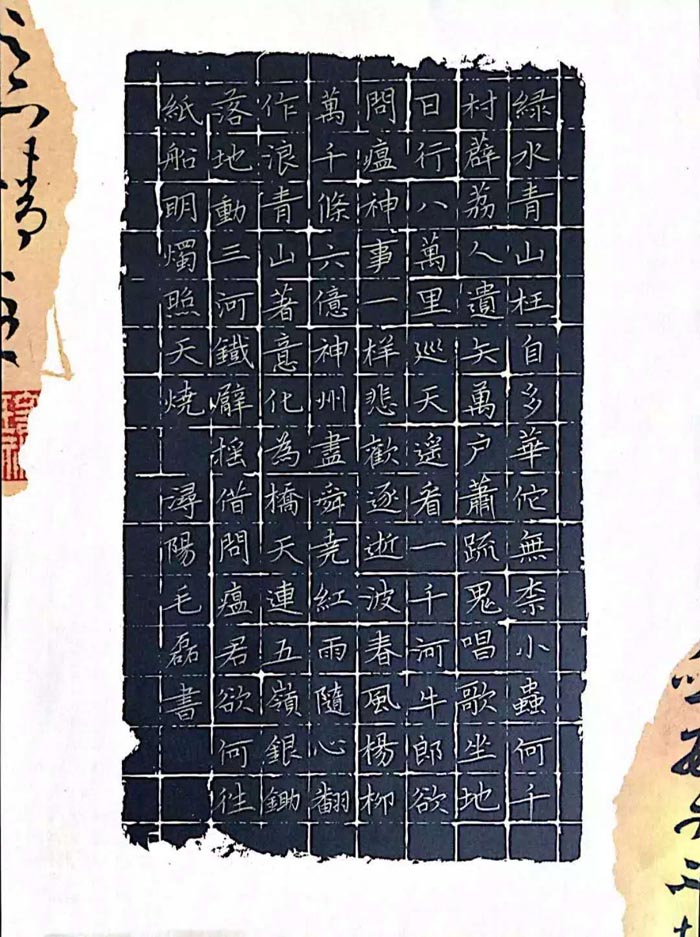 綠水青山枉自多華佗無柰小蟲何千
村薜荔人遺矢萬户蕭疏鬼唱歌坐地
日行八萬里巡天遥看一千河牛郎欲
問瘟神事一样悲歡逐逝波春風楊柳
萬千條六億神州盡舜尭紅雨隨心翻
作浪青山著意化為橋天連五嶺銀鋤
落地動三河鐵摇借問瘟君欲何往
紙船明燭照天燒 潯陽毛磊書